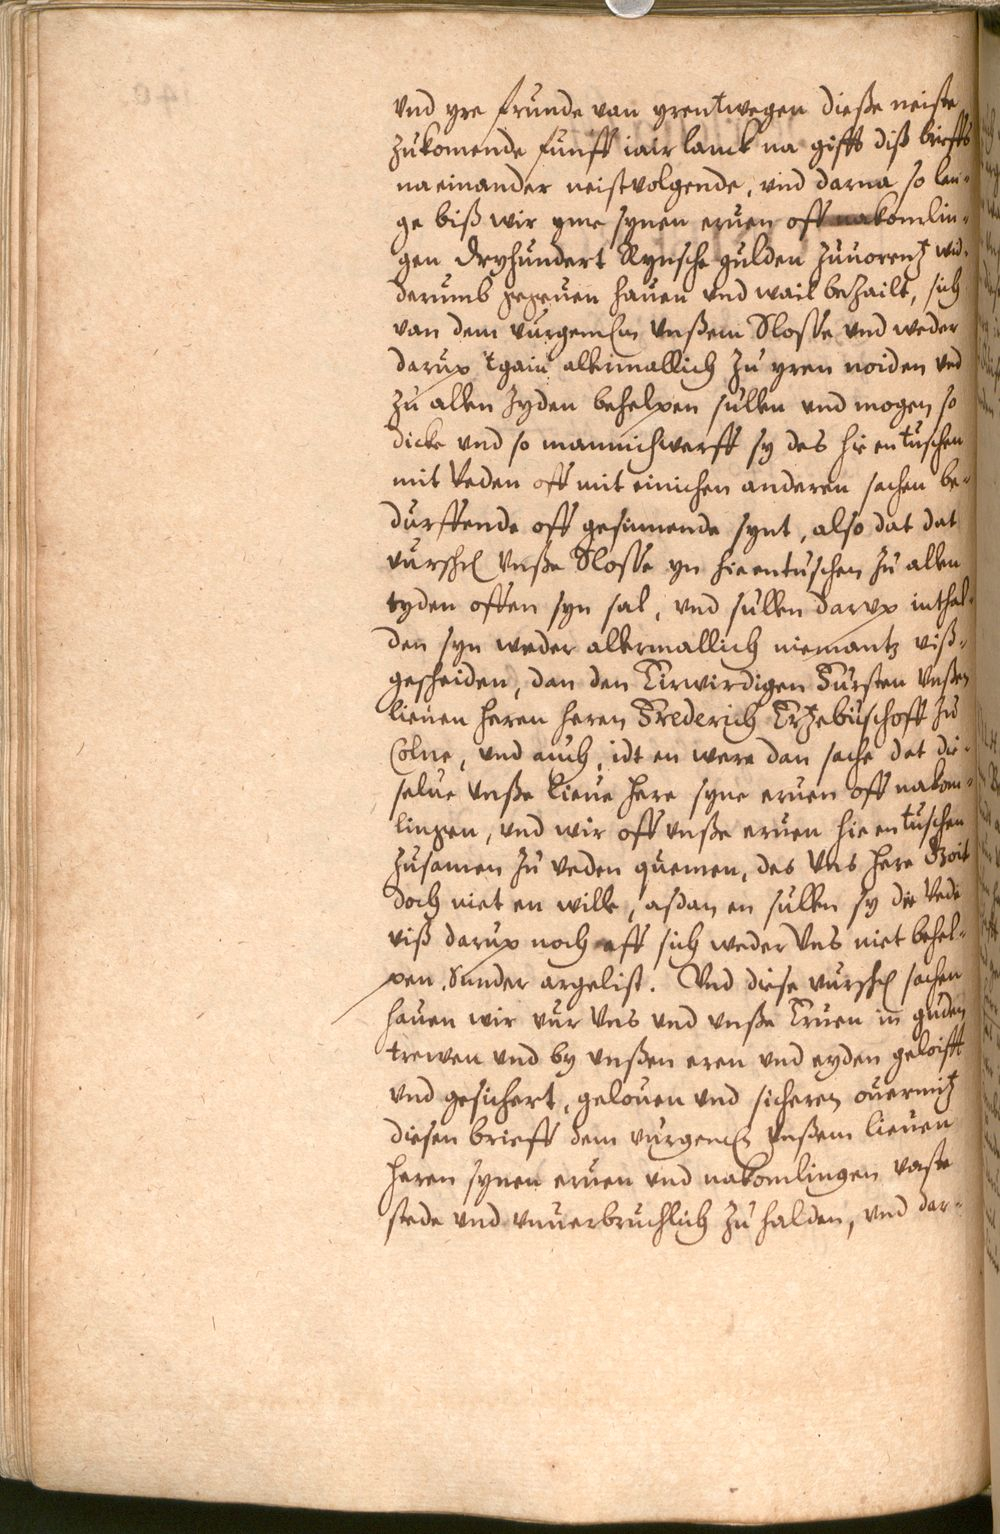 vnd yre frunde van yrentwegen dieße neiste
zukomende funff iair lanck na gifft diß brieffs
naeinander neistvolgende, vnd darna so len-
ge biß wir yme synen eruen off nakomlin-
gen dryhundert Rynsche gulden zuuorentz wid-
derumb gegeuen hauen vnd wail bezailt, sich
van dem vurgemelten vnßem Slosse vnd weder
darup tgain allermallich zu yren noiden vnd
zu allen zyden behelpen sullen vnd mogen so
dicke vnd so mannichwerff sy des hie entuschen
mit Veden off mit einichen anderen sachen be-
durffende off gesinnende synt, also dat dat
vurschr vnße Slosse yn hieentuschen zu allen
tyden offen syn sal, vnd sullen darup inthal-
den syn weder allermallich niemantz viß-
gescheiden, dan den Eirwirdigen Fursten vnßen
lieuen heren heren Frederich Ertzebuschoff zu
Colne, vnd auch, idt en were dan sache dat die-
selue vnße lieue here syne eruen off nakom-
lingen, vnd wir off vnße eruen hie entuschen
zusamen zu veden quemen, des vns here Goit
doch niet en wille, aßdan en sullen sy die vede
viß darup noch aff sich weder vns niet behel-
pen. Sunder argelist. Vnd diese vurschr sachen
hauen wir vur vns vnd vnße Eruen in guden
trewen vnd by vnßen eren vnd eyden geloifft
vnd gesichert, gelouen vnd sicheren ouermitz
diesen brieff dem vurgemelten vnßem lieuen
heren synen eruen vnd nakomlingen vaste
stede vnd vnuerbruchlich zu halden, vnd dar-